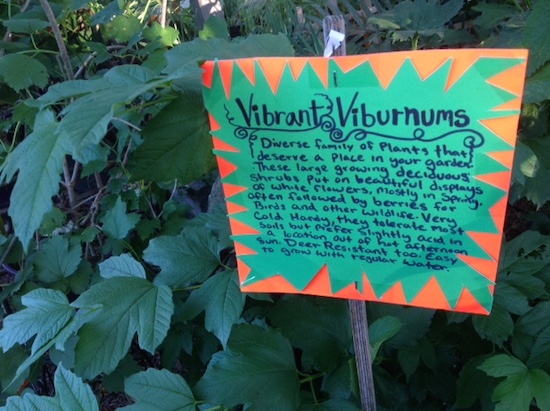 Vibrant Viburnums
Diverse family of Plants that
deserve a Place in your garden.
These large growing deciduous
Shrubs Put on beautiful displays
of white flowers, mostly in Spring,
often followed by berries for
birds and other wildlife. Very
Cold Hardy, they tolerate most
soils but prefer slightly acid in
a location out of hot afternoon
Sun. Deer Resistant too. Easy
to grow with regular water.